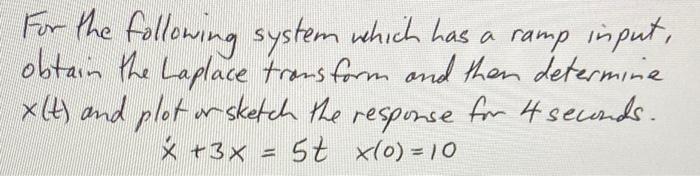 For the following system which has a ramp input,
obtain the Laplace transform and then determine
x(t) and plot or sketch the response for 4 seconds.
ẋ + 3x = 5t x(0) = 10